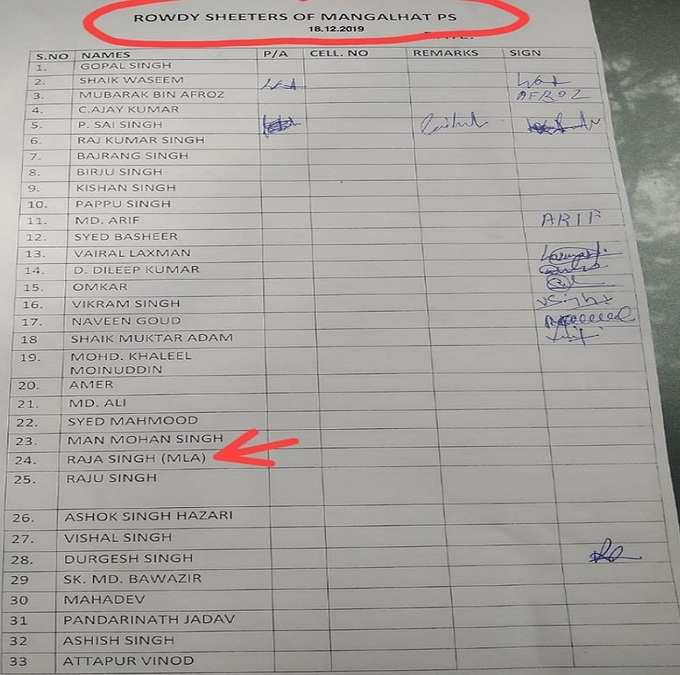 ROWDY SHEETERS OF MANGALHAT PS
18.12.2019
S.NO NAMES P/A CELL. NO REMARKS SIGN
1. GOPAL SINGH
2. SHAIK WASEEM
3. MUBARAK BIN AFROZ AFROZ
4. C.AJAY KUMAR
5. P. SAI SINGH
6. RAJ KUMAR SINGH
7. BAJRANG SINGH
8. BIRJU SINGH
9. KISHAN SINGH
10. PAPPU SINGH
11. MD. ARIF ARIF
12. SYED BASHEER
13. VAIRAL LAXMAN
14. D. DILEEP KUMAR
15. OMKAR
16. VIKRAM SINGH
17. NAVEEN GOUD
18 SHAIK MUKTAR ADAM
19. MOHD. KHALEEL
MOINUDDIN
20. AMER
21. MD. ALI
22. SYED MAHMOOD
23. MAN MOHAN SINGH
24. RAJA SINGH (MLA)
25. RAJU SINGH
26. ASHOK SINGH HAZARI
27. VISHAL SINGH
28. DURGESH SINGH
29 SK. MD. BAWAZIR
30 MAHADEV
31 PANDARINATH JADAV
32 ASHISH SINGH
33 ATTAPUR VINOD